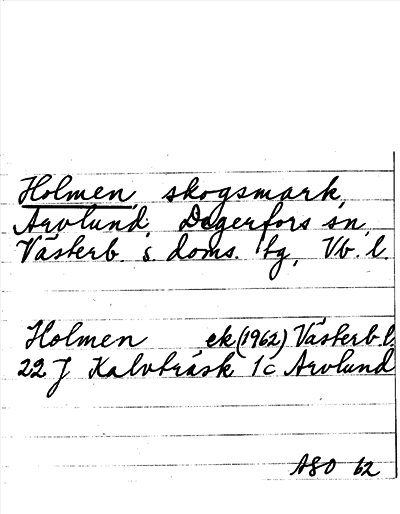 Holmen, skogsmark,
Arvlund, Degerfors sn,
Västerb. s. doms. tg, Vb. l.
Holmen ek (1962) Västerb. l.
22 J Kalvträsk 1c Arvlund
ASO 62